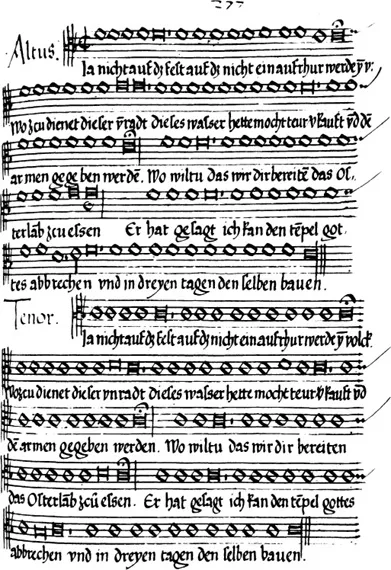 277
Altus.
Ja nicht auf dz fest auf dz nicht ein aufrhur werde ym
Wo zcu dienet dieser vnradt dieses wasser hette mocht teur vkauft vnd dē
armen gegeben werdē. Wo wiltu das wir dir bereitē das Os,
terlāb zcu essen Er hat gesagt ich kan den tēpel got,
tes abbrechen vnd in dreyen tagen den selben bauen.
Tenor.
Ja nicht auf dz fest auf dz nicht ein aufrhur werde ym volck.
Wozcu dienet dieser vnradt dieses wasser hette mocht teur vkauft vnd
dē armen gegeben werden. Wo wiltu das wir dir bereiten
das Osterlāb zcu essen. Er hat gesagt ich kan den tēpel gottes
abbrechen vnd in dreyen tagen den selben bauen.